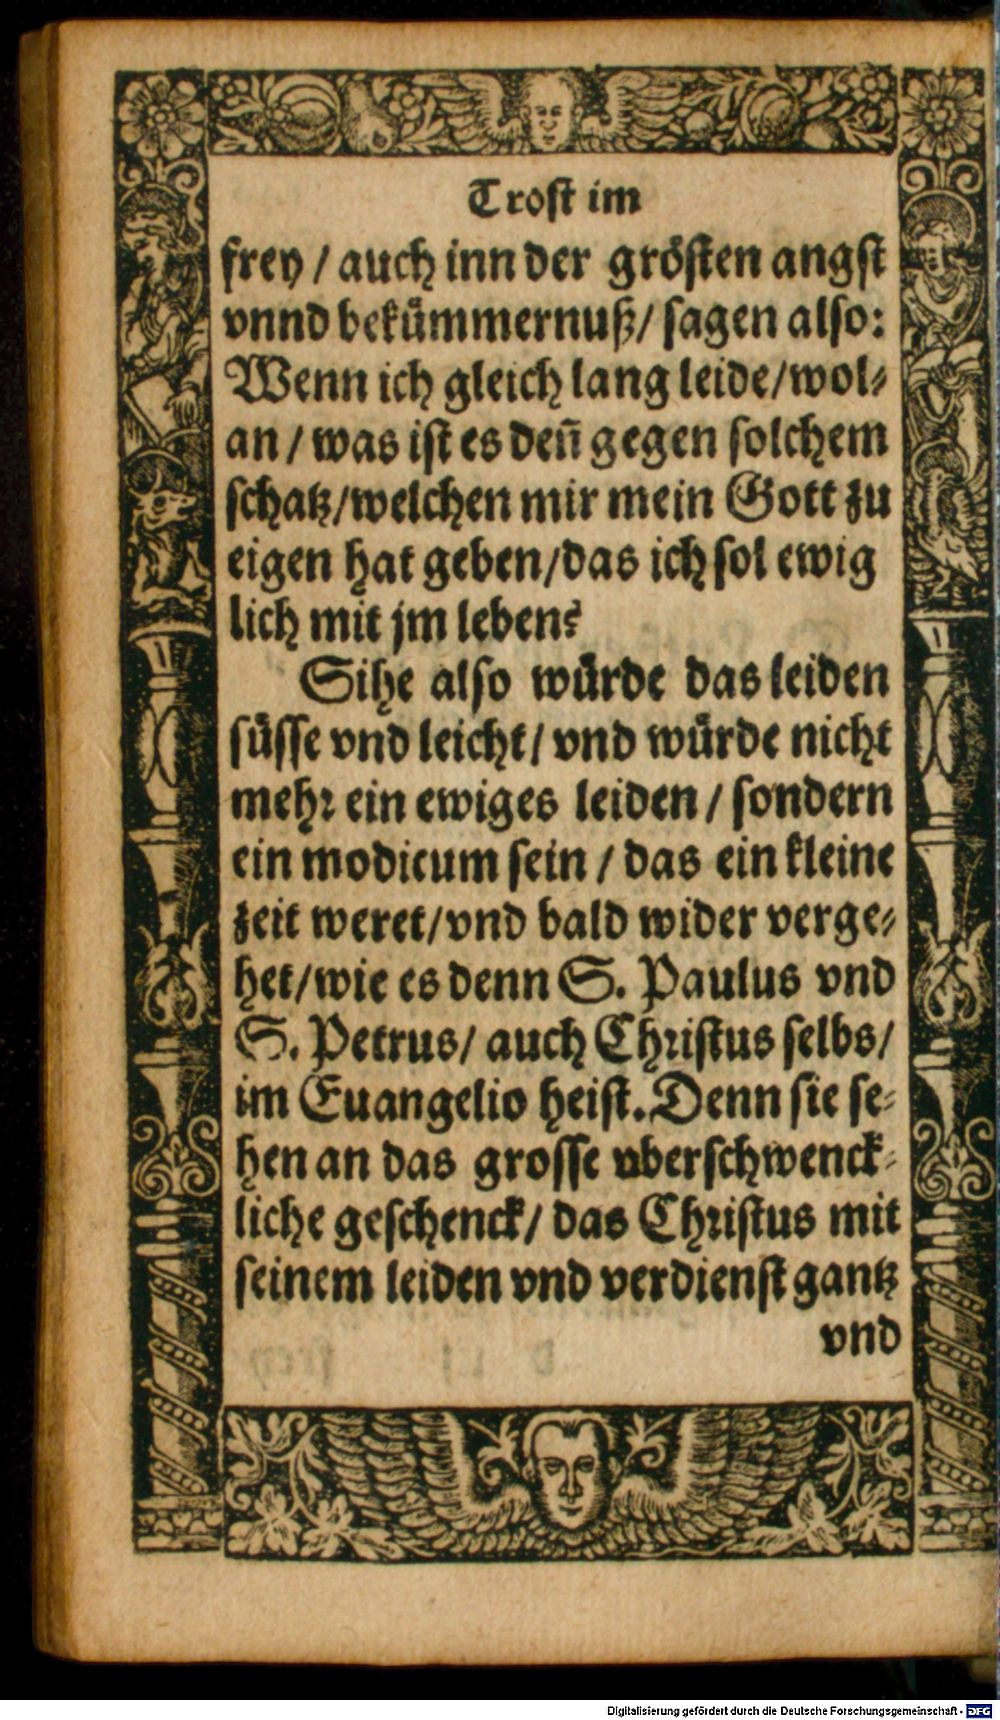 Trost im
frey / auch inn der grösten angst
vnnd bekümmernuß / sagen also:
Wenn ich gleich lang leide / wol⸗
an / was ist es deñ gegen solchem
schatz / welchen mir mein Gott zu
eigen hat geben / das ich sol ewig
lich mit jm leben?
Sihe also würde das leiden
süsse vnd leicht / vnd würde nicht
mehr ein ewiges leiden / sondern
ein modicum sein / das ein kleine
zeit weret / vnd bald wider verge⸗
het / wie es denn S. Paulus vnd
S. Petrus / auch Christus selbs /
im Euangelio heist. Denn sie se⸗
hen an das grosse vberschwenck⸗
liche geschenck / das Christus mit
seinem leiden vnd verdienst gantz
vnd
Digitalisierung gefördert durch die Deutsche Forschungsgemeinschaft - DFG